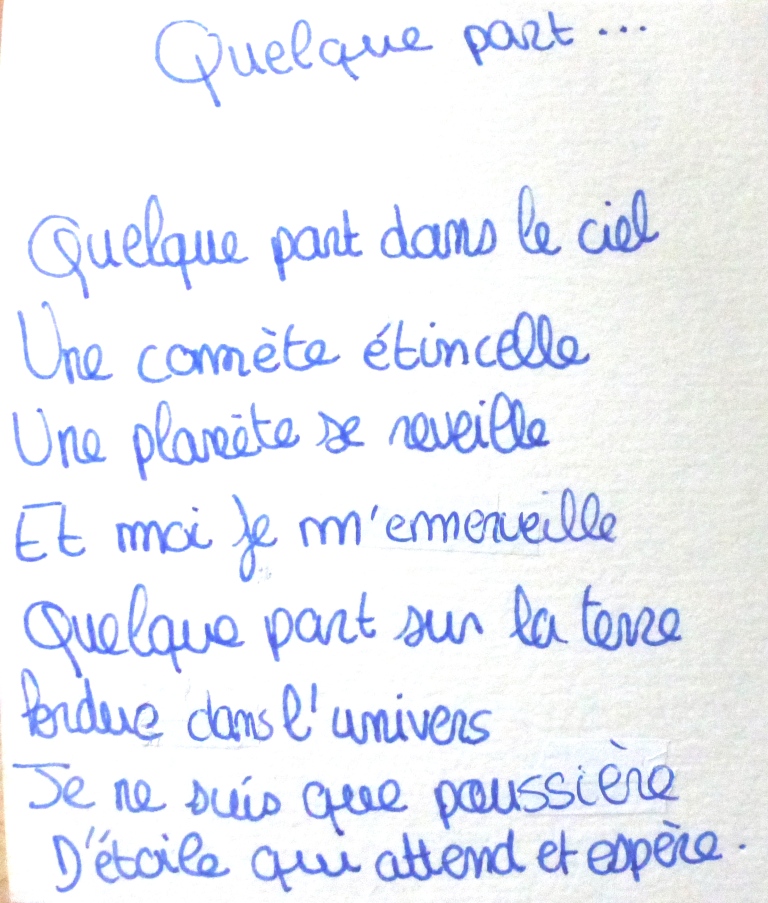 Quelque part...
Quelque part dans le ciel
Une comète étincelle
Une planète se reveille
Et moi je m'emerveille
Quelque part sur la terre
Perdue dans l'univers
Je ne suis que poussière
D'étoile qui attend et espère.